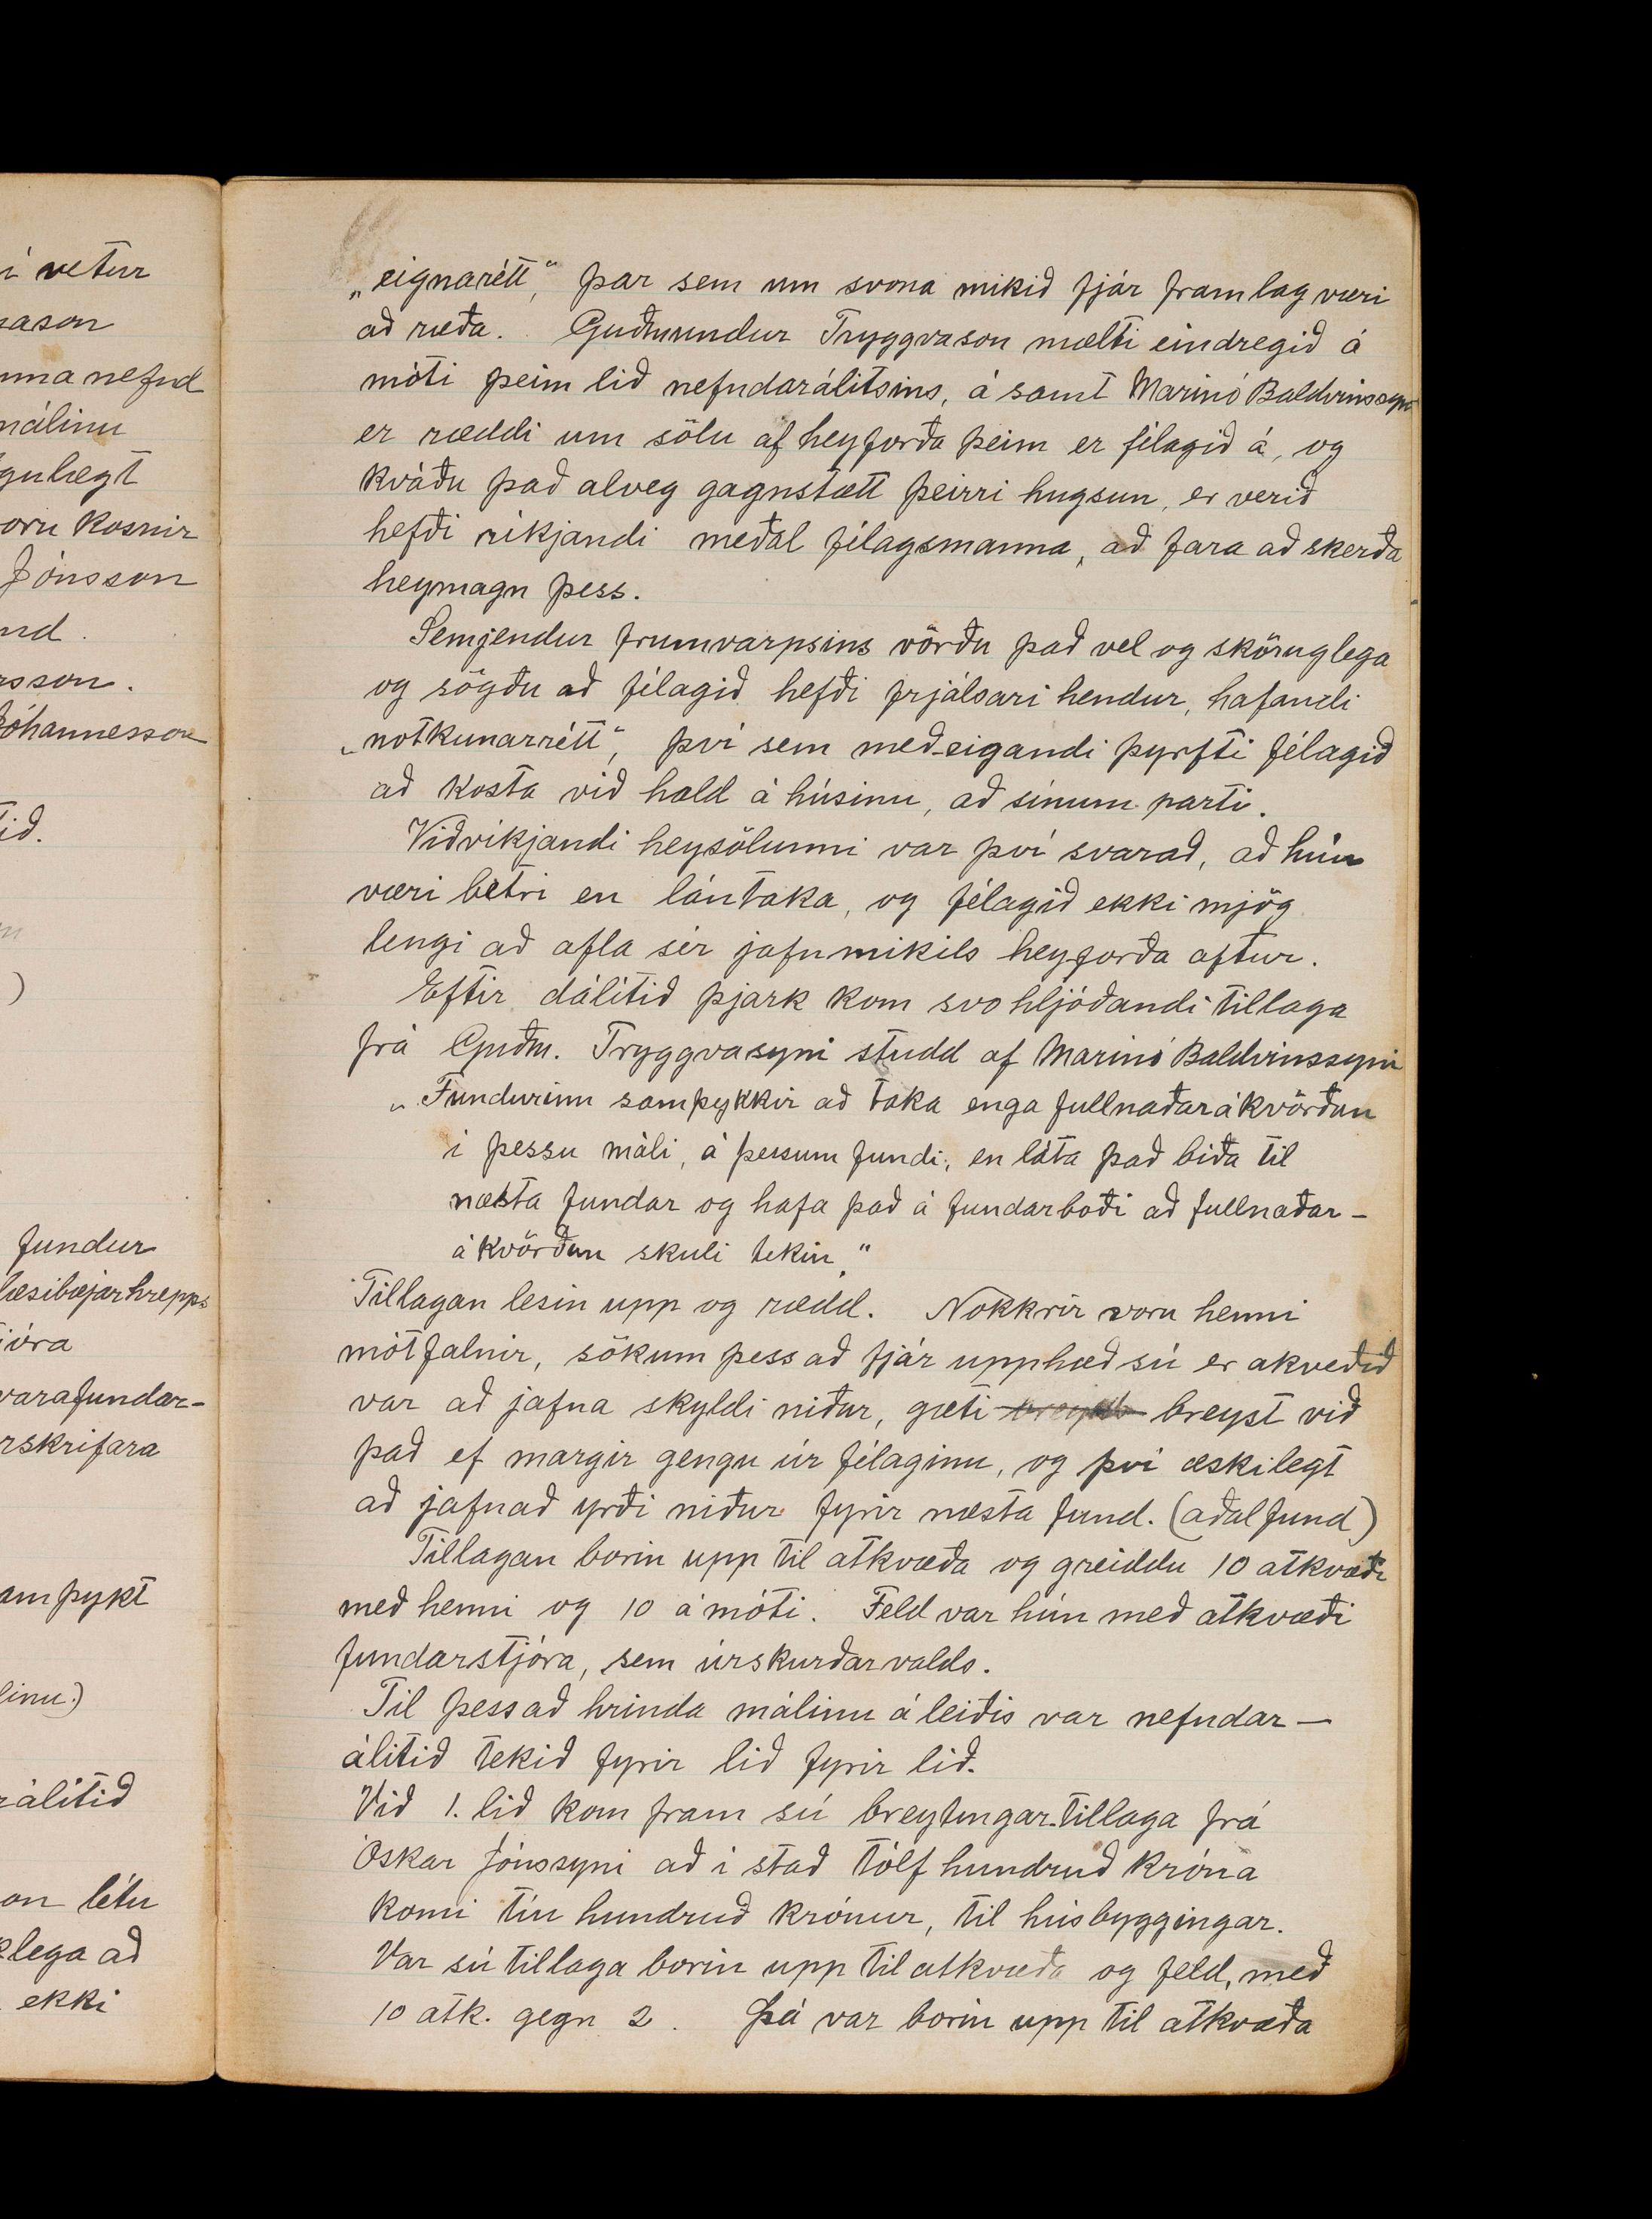 í vetur
ason
nna nefnd
málinu
gulegt
oru kosnir
Jónsson
nd.
rsson.
Jóhannesson
ið.
)
fundur
læsibæjarhrepps
jóra
varafundar-
rskrifara
amþykt
linu.)
rálitið
on létu
lega að
ekki
„eignarétt", þar sem um svona mikið fjár framlag væri
að ræða. Guðmundur Tryggvason mælti eindregið á
móti þeim lið nefndarálitsins, á samt Marinó Baldvinssyni
er ræddi um sölu af heyforða þeim er félagið á, og
kváðu það alveg gagnstætt þeirri hugsun, er verið
hefði ríkjandi meðal félagsmanna, að fara að skerða
heymagn þess.
Semjendur frumvarpsins vörðu það vel og sköruglega
og sögðu að félagið hefði frjálsari hendur, hafandi
„notkunarrétt", því sem með-eigandi þyrfti félagið
að kosta við hald á húsinu, að sínum parti.
Viðvíkjandi heysölunni var því svarað, að hún
væri betri en lántaka, og félagið ekki mjög
lengi að afla sér jafn mikils heyforða aftur.
Eftir dálítið þjark kom svo hljóðandi tillaga
frá Guðm. Tryggvasyni studd af Marinó Baldvinssyni
„Fundurinn samþykkir að taka enga fullnaðarákvörðun
í þessu máli, á þessum fundi, en láta það bíða til
næsta fundar og hafa það á fundarboði að fullnaðar-
ákvörðun skuli tekin."
Tillagan lesin upp og rædd. Nokkrir voru henni
mótfalnir, sökum þess að fjár upphæð sú er akveðið
var að jafna skyldi niður, gæti breyst við
það ef margir gengu úr félaginu, og því æskilegt
að jafnað yrði niður fyrir næsta fund. (aðalfund)
Tillagan borin upp til atkvæða og greiddu 10 atkvæði
með henni og 10 á móti. Feld var hún með atkvæði
fundarstjóra, sem úrskurðarvalds.
Til þess að hrinda málinu á leiðis var nefndar-
álitið tekið fyrir lið fyrir lið.
Við 1. lið kom fram sú breytingar-tillaga frá
Óskar Jónssyni að í stað tólf hundruð króna
komi tíu hundruð krónur, til húsbyggingar.
Var sú tillaga borin upp til atkvæða og feld, með
10 atk. gegn 2. Þá var borin upp til atkvæða